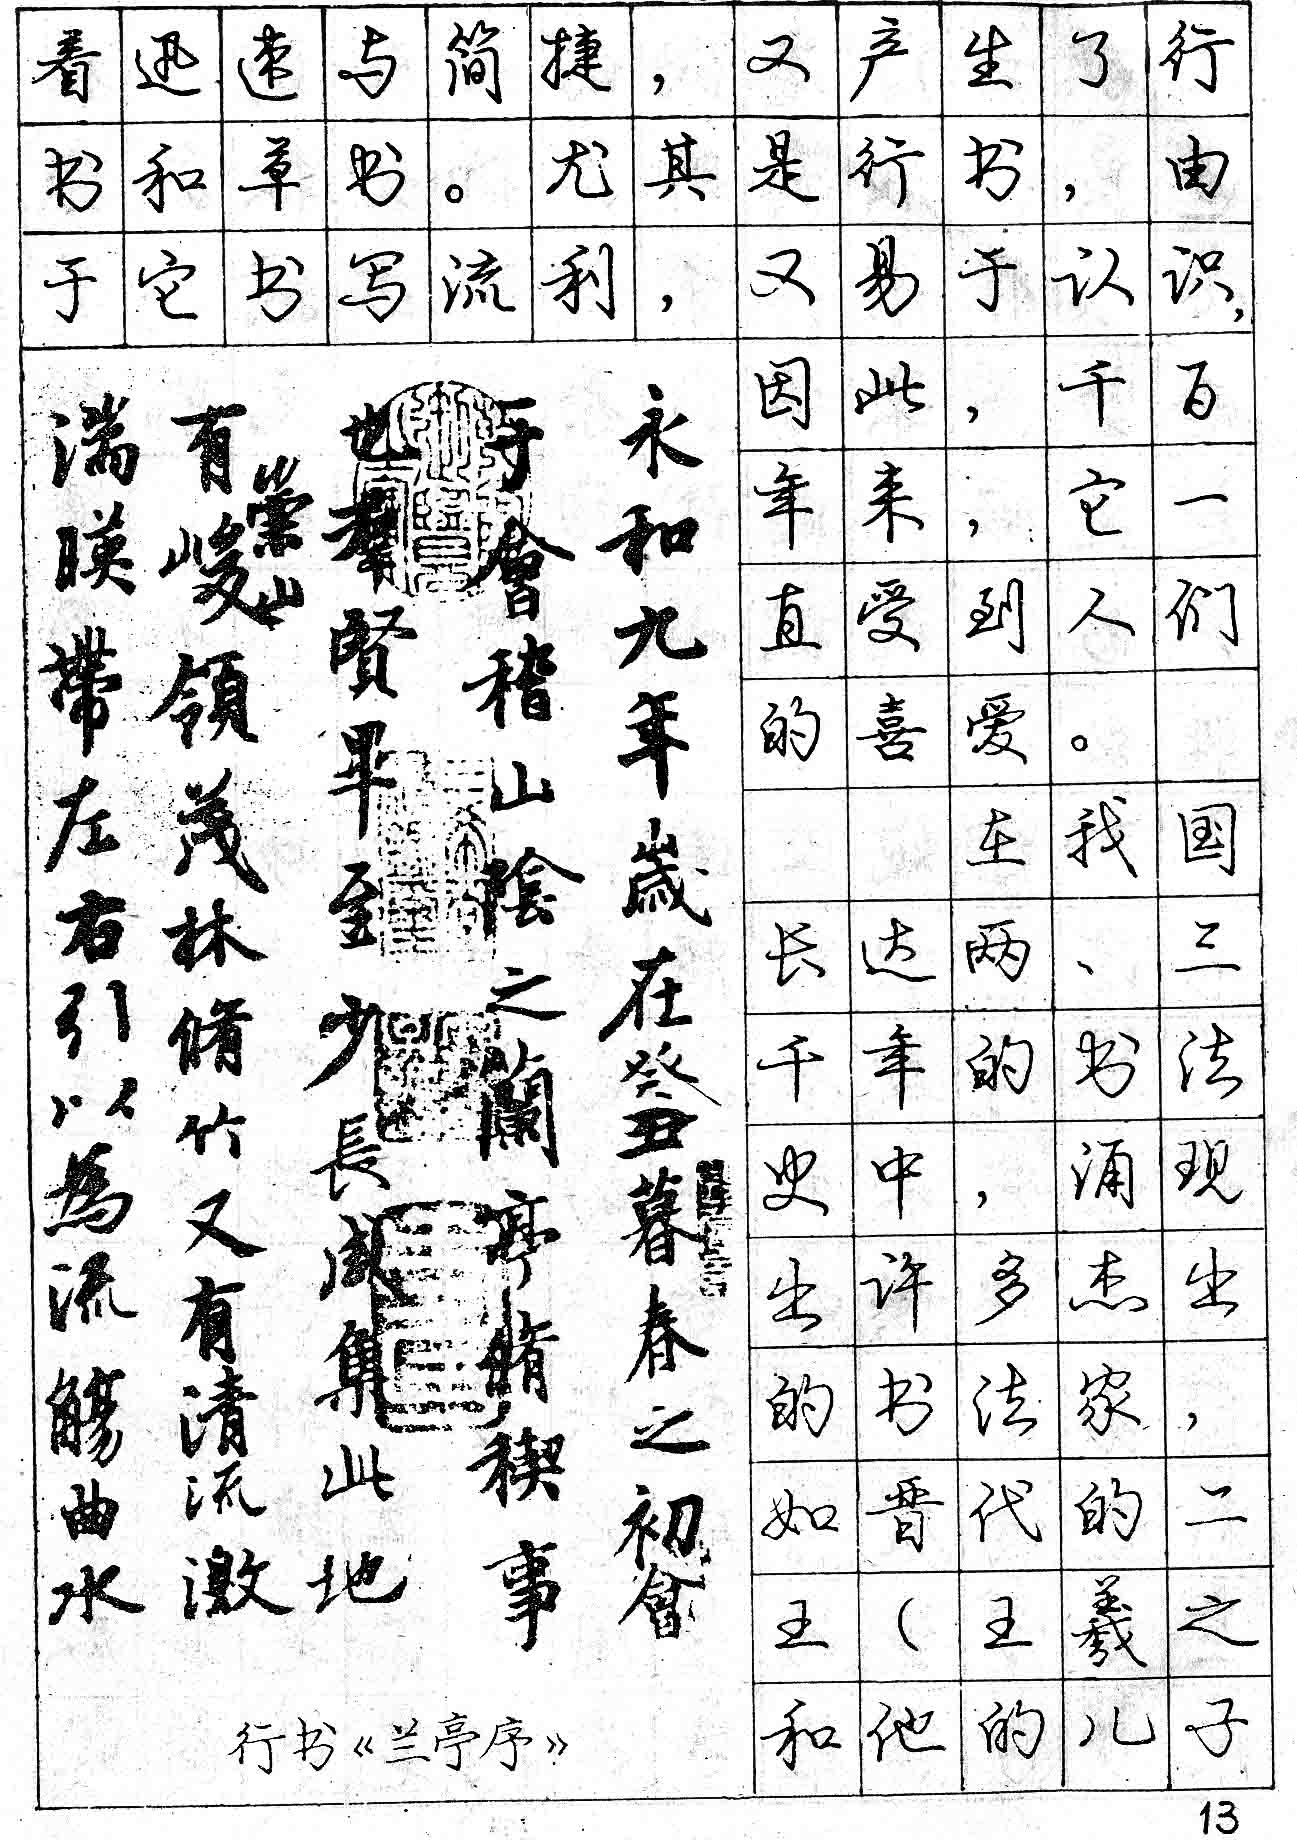 看迅速与简捷，又产生了行
书和草书。尤其是行书，由
于它书写流利，又易于认识，
因此，千百
年来，它一
直受到人们
的喜爱。
在我国
长达两、三
千年的书法
史中，涌现
出许多杰出
的书法家，
如晋代的二
王（王羲之
和他的儿子
永和九年歲在癸丑暮春之初會
于會稽山陰之蘭亭脩稧事
也羣賢畢至少長咸集此地
有崇山峻領茂林脩竹又有清流激
湍暎帶左右引以為流觴曲水
行书《兰亭序》
13